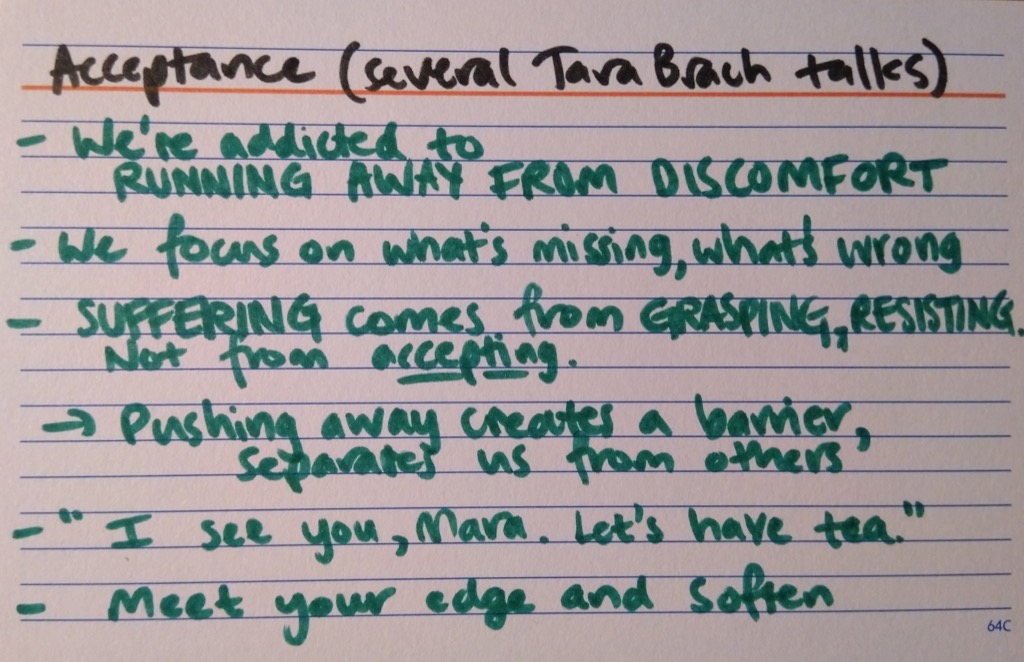 Acceptance (several Tara Brach talks)
- We're addicted to
RUNNING AWAY FROM DISCOMFORT
- We focus on what's missing, what's wrong
- SUFFERING comes from GRASPING, RESISTING.
Not from accepting.
→ Pushing away creates a barrier,
separates us from others
- "I see you, Mara. Let's have tea."
- Meet your edge and soften
64C